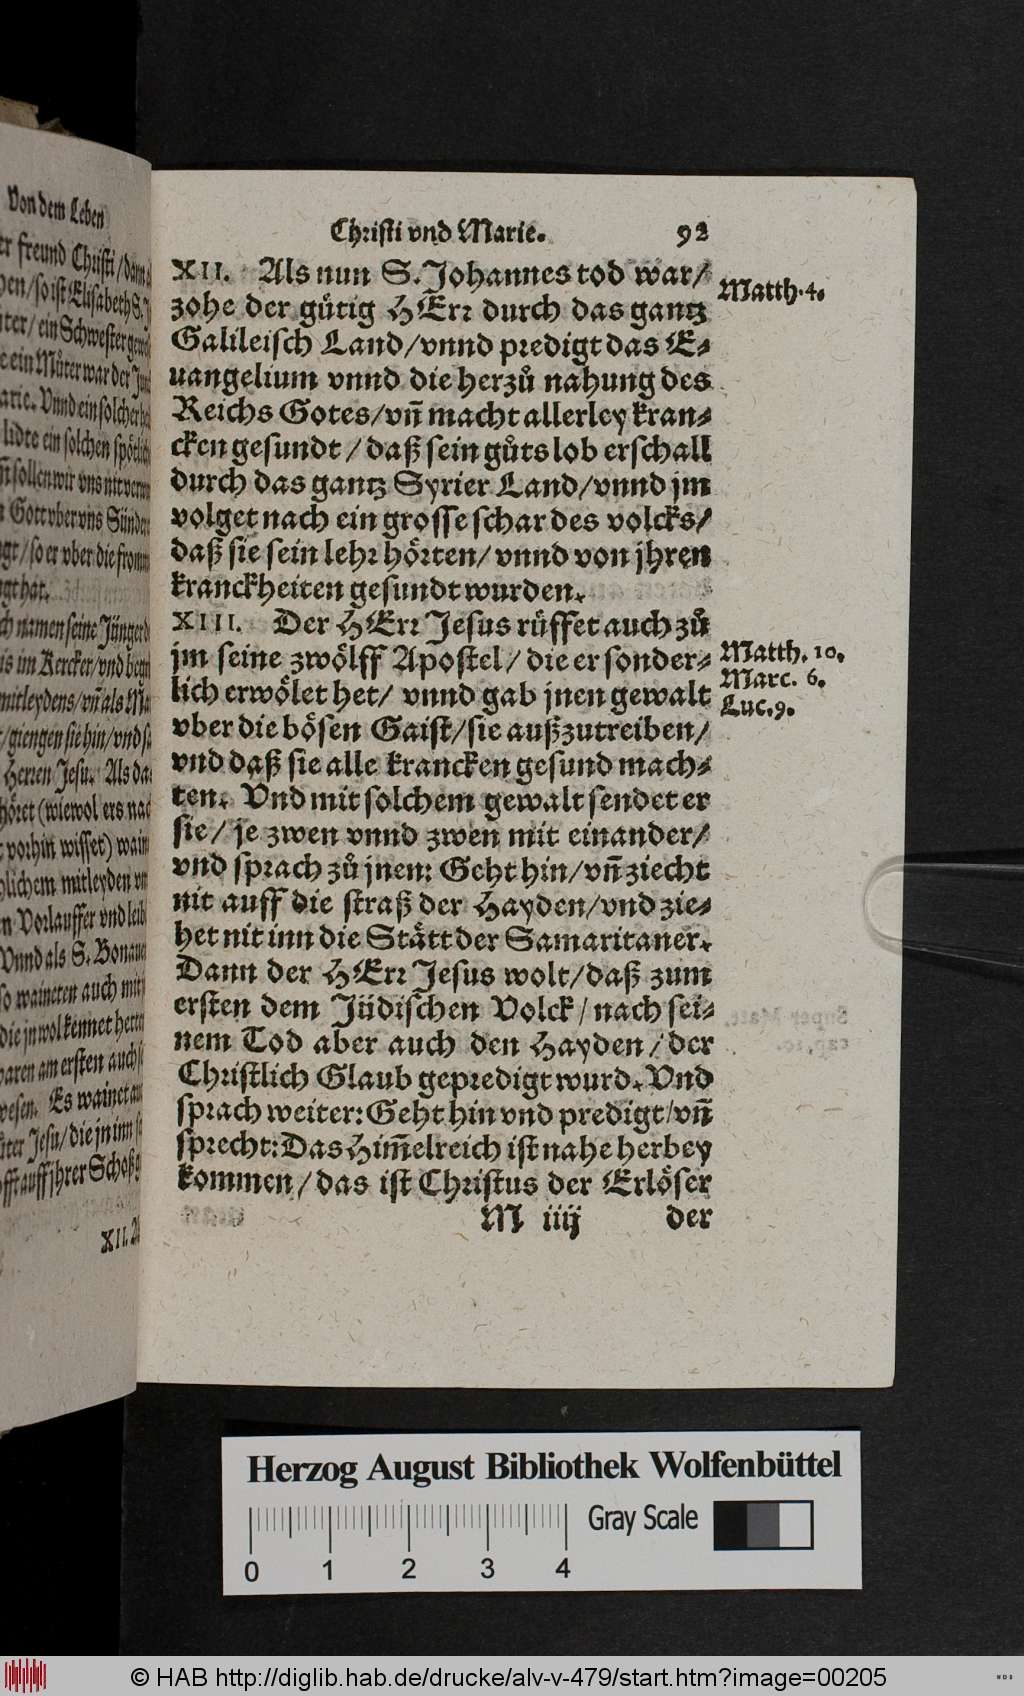 Von dem Leben
freund Christi / dann
so ist Elisabeth S.
ter / ein Schwester
ein Můter war der
Vnnd ein solcher
lidte ein solchen
sollen wir vns nit
Gott vber vns Sünder
so er vber die
hat.
namen seine Jünger
im Kercker / vnd
mitleydens / vñ als
giengen sie hin / vnd
Herren Jesu. Als
(wiewol ers
vorhin wisset)
mitleyden
Vorlauffer vnd
Vnnd als S.
so waineten auch
die jn wol kennet
waren am ersten auch
Es wainet
Jesu / die jn inn
auff jhrer Schoß
XII.
Christi vnd Marie. 92
XII. Als nun S. Johannes tod war /
zohe der gůtig HErr durch das gantz
Galileisch Land / vnnd predigt das E⸗
uangelium vnnd die herzů nahung des
Reichs Gotes / vñ macht allerley kran⸗
cken gesundt / daß sein gůts lob erschall
durch das gantz Syrier Land / vnnd jm
volget nach ein grosse schar des volcks /
daß sie sein lehr hörten / vnnd von jhren
kranckheiten gesundt wurden.
XIII. Der HErr Jesus rüffet auch zů
jm seine zwölff Apostel / die er sonder⸗
lich erwölet het / vnnd gab jnen gewalt
vber die bösen Gaist / sie außzutreiben /
vnd daß sie alle krancken gesund mach⸗
ten. Vnd mit solchem gewalt sendet er
sie / je zwen vnnd zwen mit einander /
vnd sprach zů jnen: Geht hin / vñ ziecht
nit auff die straß der Hayden / vnd zie⸗
het nit inn die Stätt der Samaritaner.
Dann der HErr Jesus wolt / daß zum
ersten dem Jüdischen Volck / nach sei⸗
nem Tod aber auch den Hayden / der
Christlich Glaub gepredigt wurd. Vnd
sprach weiter: Geht hin vnd predigt / vñ
sprecht: Das Him̄elreich ist nahe herbey
kommen / das ist Christus der Erlöser
M iiij der
Matth. 4.
Matth. 10.
Marc. 6.
Luc. 9.
Herzog August Bibliothek Wolfenbüttel
0 1 2 3 4
Gray Scale
© HAB http://diglib.hab.de/drucke/alv-v-479/start.htm?image=00205